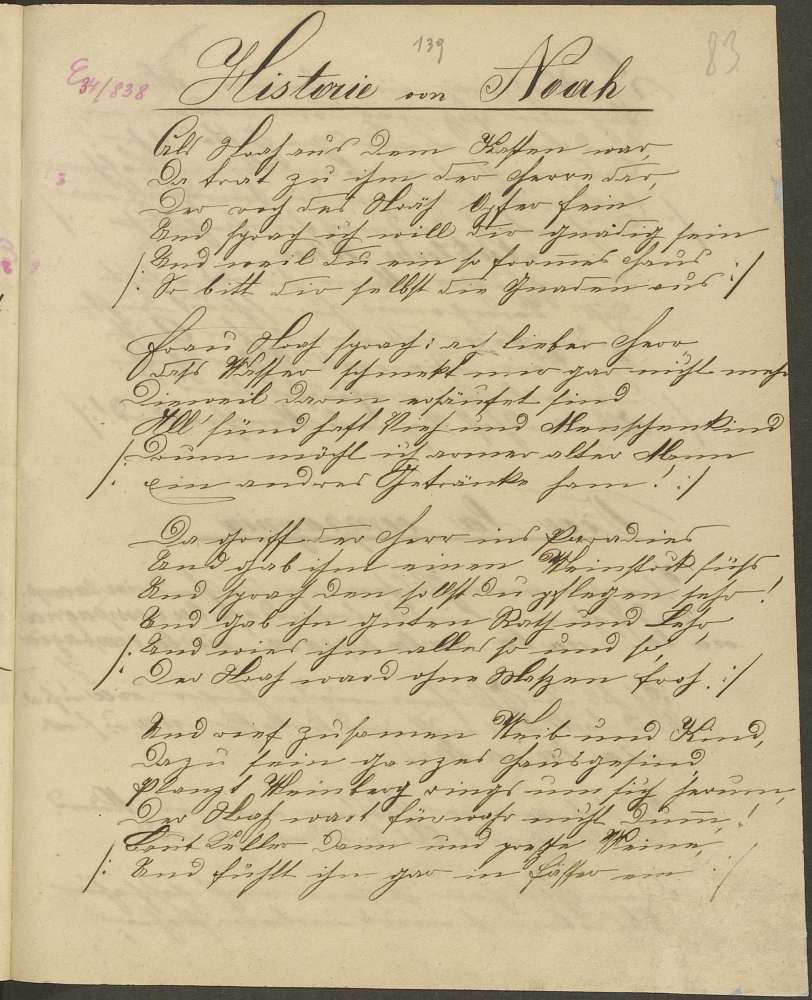 139
83
E 34/838
Historie von Noah
Als Noah aus dem Kasten war,
Da trat zu ihm der Herre dar,
Der roch des Noäh Opfer fein
Und sprach ich will dir gnädig sein
/: Und weil du ein so from̅es Haus
So bitt dir selbst die Gnaden aus :/
Frau Noah sprach: ach lieber Herr
dass Wasser schmekt mir gar nicht mehr
Dieweil darin ersäufet sind
All' sündhaft Vieh und Menschenkind
/: Drum möcht ich armer alter Mann
ein andres Getränke ham! :/
Da griff der Herr ins Paradies
Und gab ihm einen Weinstock süß
Und sprach den sollst du pflegen sehr!
Und gab ihn guten Rath und Lehr,
/: Und wies ihm alles so und so,
Der Noah ward ohne Maßen froh. :/
Und rief zusamen Weib und Kind,
Dazu sein ganzes Hausgesind
Planzt' Weinberg rings um sich herum,
Der Noah wart fürwahr nicht dum̅,!
/: Baut Keller dann und preßte Weine,
Und fühlt ihn gar in Fässer ein :/